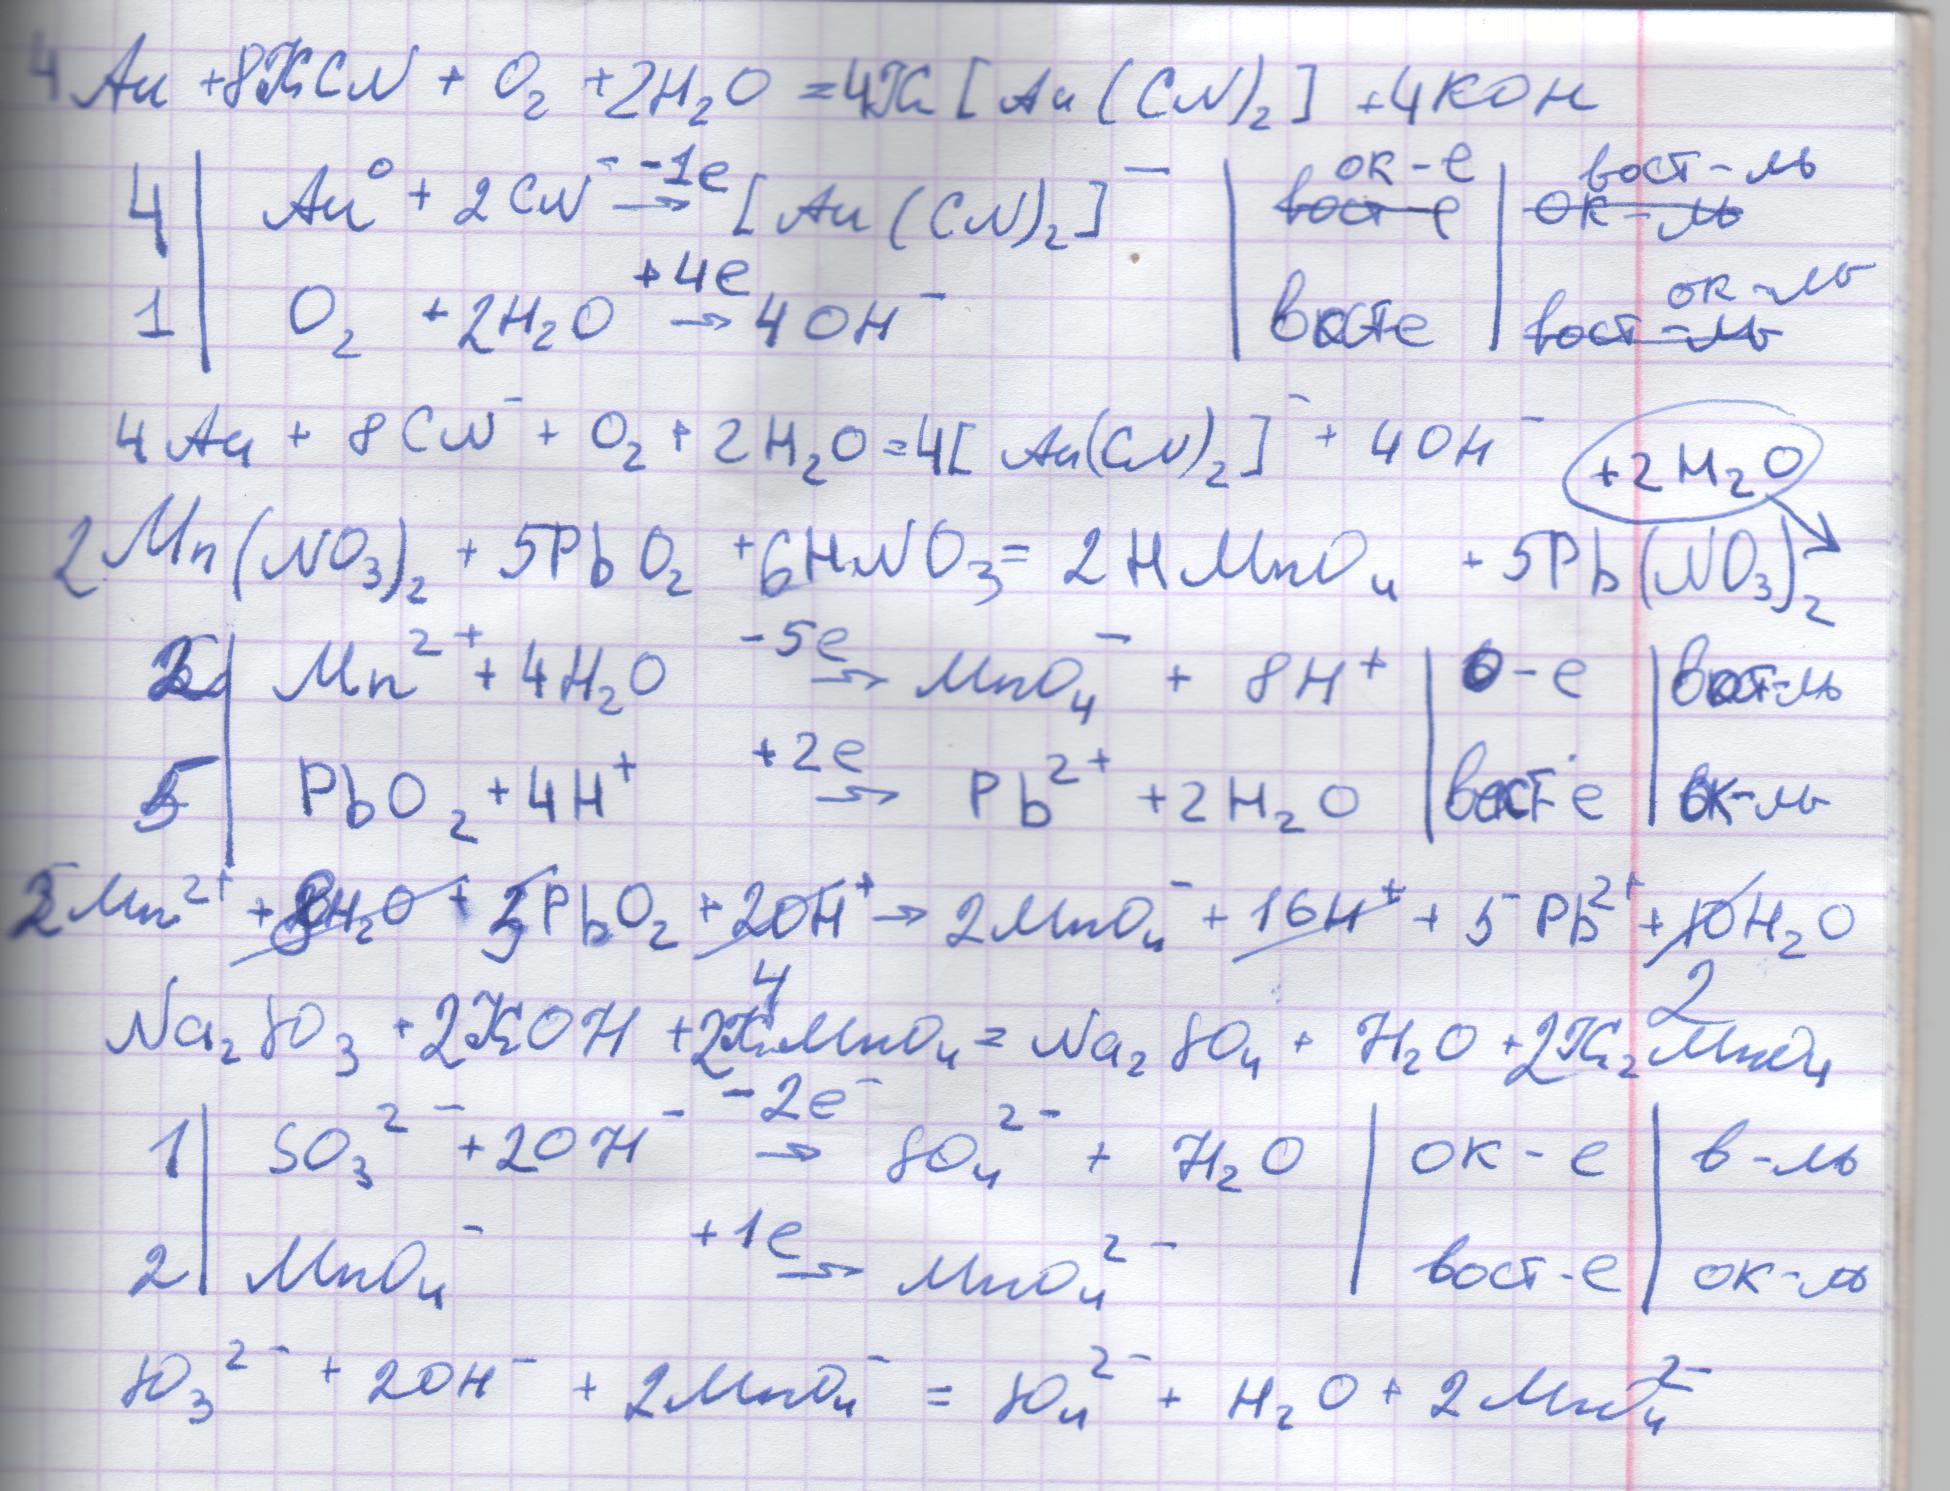 4Au + 8KCN + O₂ + 2H₂O = 4K[Au(CN)₂] + 4KOH
4 | Au⁰ + 2CN⁻ -1e → [Au(CN)₂]⁻ | ок-е вост-е | вост-ль ок-ль
1 | O₂ + 2H₂O +4e → 4OH⁻ | вост-е | ок-ль вост-ль
4Au + 8CN⁻ + O₂ + 2H₂O = 4[Au(CN)₂]⁻ + 4OH⁻
+2H₂O
2Mn(NO₃)₂ + 5PbO₂ + 6HNO₃ = 2HMnO₄ + 5Pb(NO₃)₂
2 | Mn²⁺ + 4H₂O -5e → MnO₄⁻ + 8H⁺ | о-е | вост-ль
5 | PbO₂ + 4H⁺ +2e → Pb²⁺ + 2H₂O | вост-е | ок-ль
2Mn²⁺ + 8H₂O + 5PbO₂ + 20H⁺ → 2MnO₄⁻ + 16H⁺ + 5Pb²⁺ + 10H₂O
4 2
Na₂SO₃ + 2KOH + 2KMnO₄ = Na₂SO₄ + H₂O + 2K₂MnO₄
1 | SO₃²⁻ + 2OH⁻ -2e⁻ → SO₄²⁻ + H₂O | ок-е | в-ль
2 | MnO₄⁻ +1e → MnO₄²⁻ | вост-е | ок-ль
SO₃²⁻ + 2OH⁻ + 2MnO₄⁻ = SO₄²⁻ + H₂O + 2MnO₄²⁻